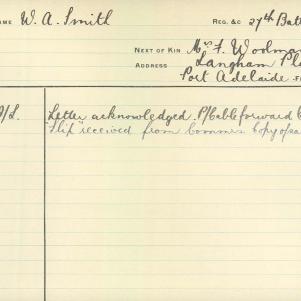 NAME W. A. Smith REG. &C 27th Batt
NEXT OF KIN Mrs F. Woolman
ADDRESS Langham Pla
Port Adelaide
Letter acknowledged. P/Cable forward
Slip" received from Commrs Copy of